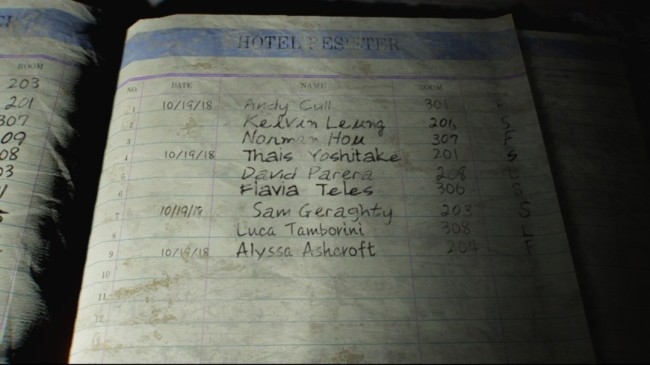 ROOM
203
201
307
09
08
03
HOTEL
NO. DATE NAME ROOM
1 10/19/18 Andy Gull 301 F
2 Kelvin Leung 206 S
3 Norman Hou 307 F
4 10/19/18 Thais Yoshitake 201 S
5 David Parera 208 L
6 Flavia Teles 306 S
7 10/19/18 Sam Geraghty 203 S
8 Luca Tamborini 308 L
9 10/19/18 Alyssa Ashcroft 204 F
10
11
12